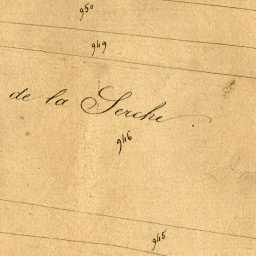 950
949
de la Serche
946
945